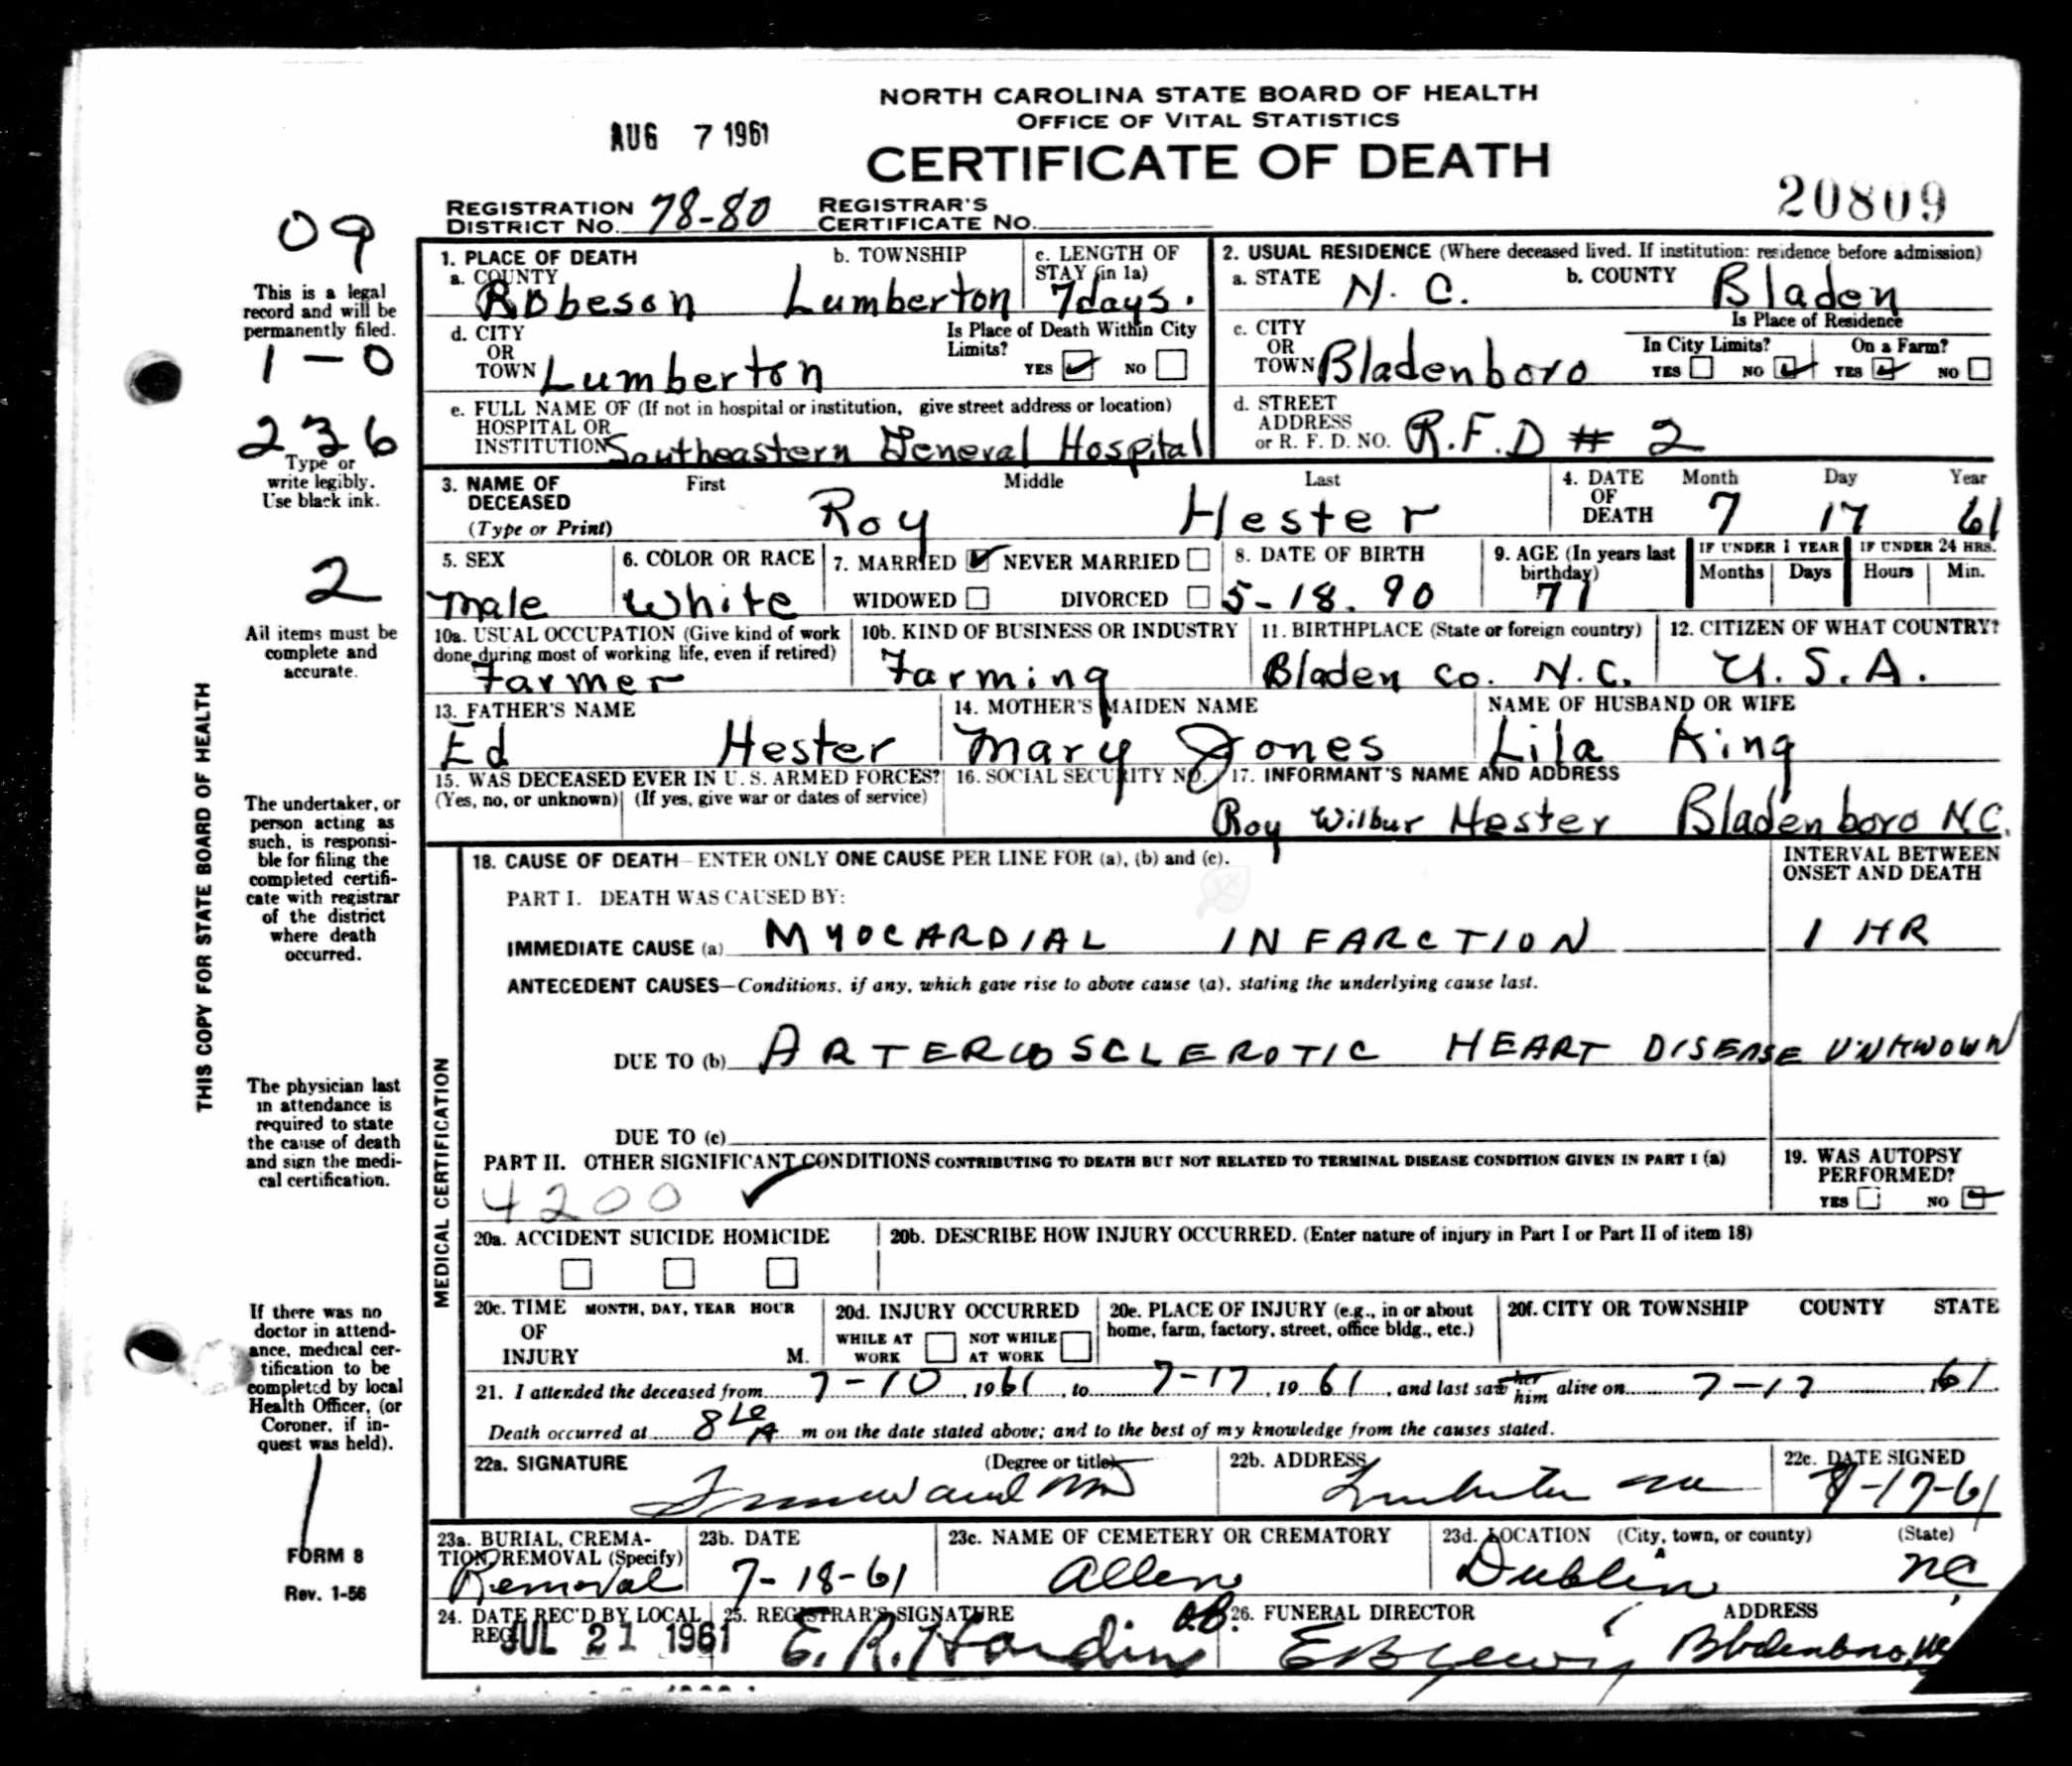 NORTH CAROLINA STATE BOARD OF HEALTH
OFFICE OF VITAL STATISTICS
AUG 7 1961
CERTIFICATE OF DEATH
20809
REGISTRATION DISTRICT NO. 78-80 REGISTRAR'S CERTIFICATE NO.
09
This is a legal
record and will be
permanently filed.
1-0
236
Type or
write legibly.
Use black ink.
2
All items must be
complete and
accurate.
THIS COPY FOR STATE BOARD OF HEALTH
The undertaker, or
person acting as
such, is responsi-
ble for filing the
completed certifi-
cate with registrar
of the district
where death
occurred.
The physician last
in attendance is
required to state
the cause of death
and sign the medi-
cal certification.
If there was no
doctor in attend-
ance, medical cer-
tification to be
completed by local
Health Officer, (or
Coroner, if in-
quest was held).
FORM 8
Rev. 1-56
1. PLACE OF DEATH
a. COUNTY Robeson
b. TOWNSHIP Lumberton
c. LENGTH OF STAY (in 1a) 7 days.
d. CITY OR TOWN Lumberton
Is Place of Death Within City Limits? YES NO
e. FULL NAME OF (If not in hospital or institution, give street address or location)
HOSPITAL OR INSTITUTION Southeastern General Hospital
2. USUAL RESIDENCE (Where deceased lived. If institution: residence before admission)
a. STATE N. C. b. COUNTY Bladen
c. CITY OR TOWN Bladenboro
Is Place of Residence
In City Limits? YES NO On a Farm? YES NO
d. STREET ADDRESS or R. F. D. NO. R.F.D # 2
3. NAME OF DECEASED (Type or Print) First Middle Last
Roy Hester
4. DATE OF DEATH Month Day Year
7 17 61
5. SEX
male
6. COLOR OR RACE
White
7. MARRIED NEVER MARRIED
WIDOWED DIVORCED
8. DATE OF BIRTH
5-18.90
9. AGE (In years last birthday)
71
IF UNDER 1 YEAR IF UNDER 24 HRS.
Months Days Hours Min.
10a. USUAL OCCUPATION (Give kind of work
done during most of working life, even if retired)
Farmer
10b. KIND OF BUSINESS OR INDUSTRY
Farming
11. BIRTHPLACE (State or foreign country)
Bladen Co. N.C.
12. CITIZEN OF WHAT COUNTRY?
U.S.A.
13. FATHER'S NAME
Ed Hester
14. MOTHER'S MAIDEN NAME
Mary Jones
NAME OF HUSBAND OR WIFE
Lila King
15. WAS DECEASED EVER IN U. S. ARMED FORCES?
(Yes, no, or unknown) (If yes, give war or dates of service)
16. SOCIAL SECURITY NO.
17. INFORMANT'S NAME AND ADDRESS
Roy Wilbur Hester Bladenboro N.C.
MEDICAL CERTIFICATION
18. CAUSE OF DEATH—ENTER ONLY ONE CAUSE PER LINE FOR (a), (b) and (c).
INTERVAL BETWEEN
ONSET AND DEATH
PART I. DEATH WAS CAUSED BY:
IMMEDIATE CAUSE (a) MYOCARDIAL INFARCTION 1 HR
ANTECEDENT CAUSES—Conditions, if any, which gave rise to above cause (a), stating the underlying cause last.
DUE TO (b) ARTERIOSCLEROTIC HEART DISEASE UNKWOWN
DUE TO (c)
PART II. OTHER SIGNIFICANT CONDITIONS CONTRIBUTING TO DEATH BUT NOT RELATED TO TERMINAL DISEASE CONDITION GIVEN IN PART I (a)
4200
19. WAS AUTOPSY
PERFORMED?
YES NO
20a. ACCIDENT SUICIDE HOMICIDE
20b. DESCRIBE HOW INJURY OCCURRED. (Enter nature of injury in Part I or Part II of item 18)
20c. TIME OF INJURY MONTH, DAY, YEAR HOUR M.
20d. INJURY OCCURRED
WHILE AT WORK NOT WHILE AT WORK
20e. PLACE OF INJURY (e.g., in or about
home, farm, factory, street, office bldg., etc.)
20f. CITY OR TOWNSHIP COUNTY STATE
21. I attended the deceased from 7-10, 1961, to 7-17, 1961, and last saw her him alive on 7-17 1961.
Death occurred at 8 A m on the date stated above; and to the best of my knowledge from the causes stated.
22a. SIGNATURE (Degree or title)
22b. ADDRESS
22c. DATE SIGNED
-17-61
23a. BURIAL, CREMA-
TION, REMOVAL (Specify)
Removal
23b. DATE
7-18-61
23c. NAME OF CEMETERY OR CREMATORY
Allen
23d. LOCATION (City, town, or county) (State)
Dublin NC
24. DATE REC'D BY LOCAL REG.
JUL 21 1961
25. REGISTRAR'S SIGNATURE
E. R. Hardin
26. FUNERAL DIRECTOR ADDRESS
E B Lewis Bladenboro, NC